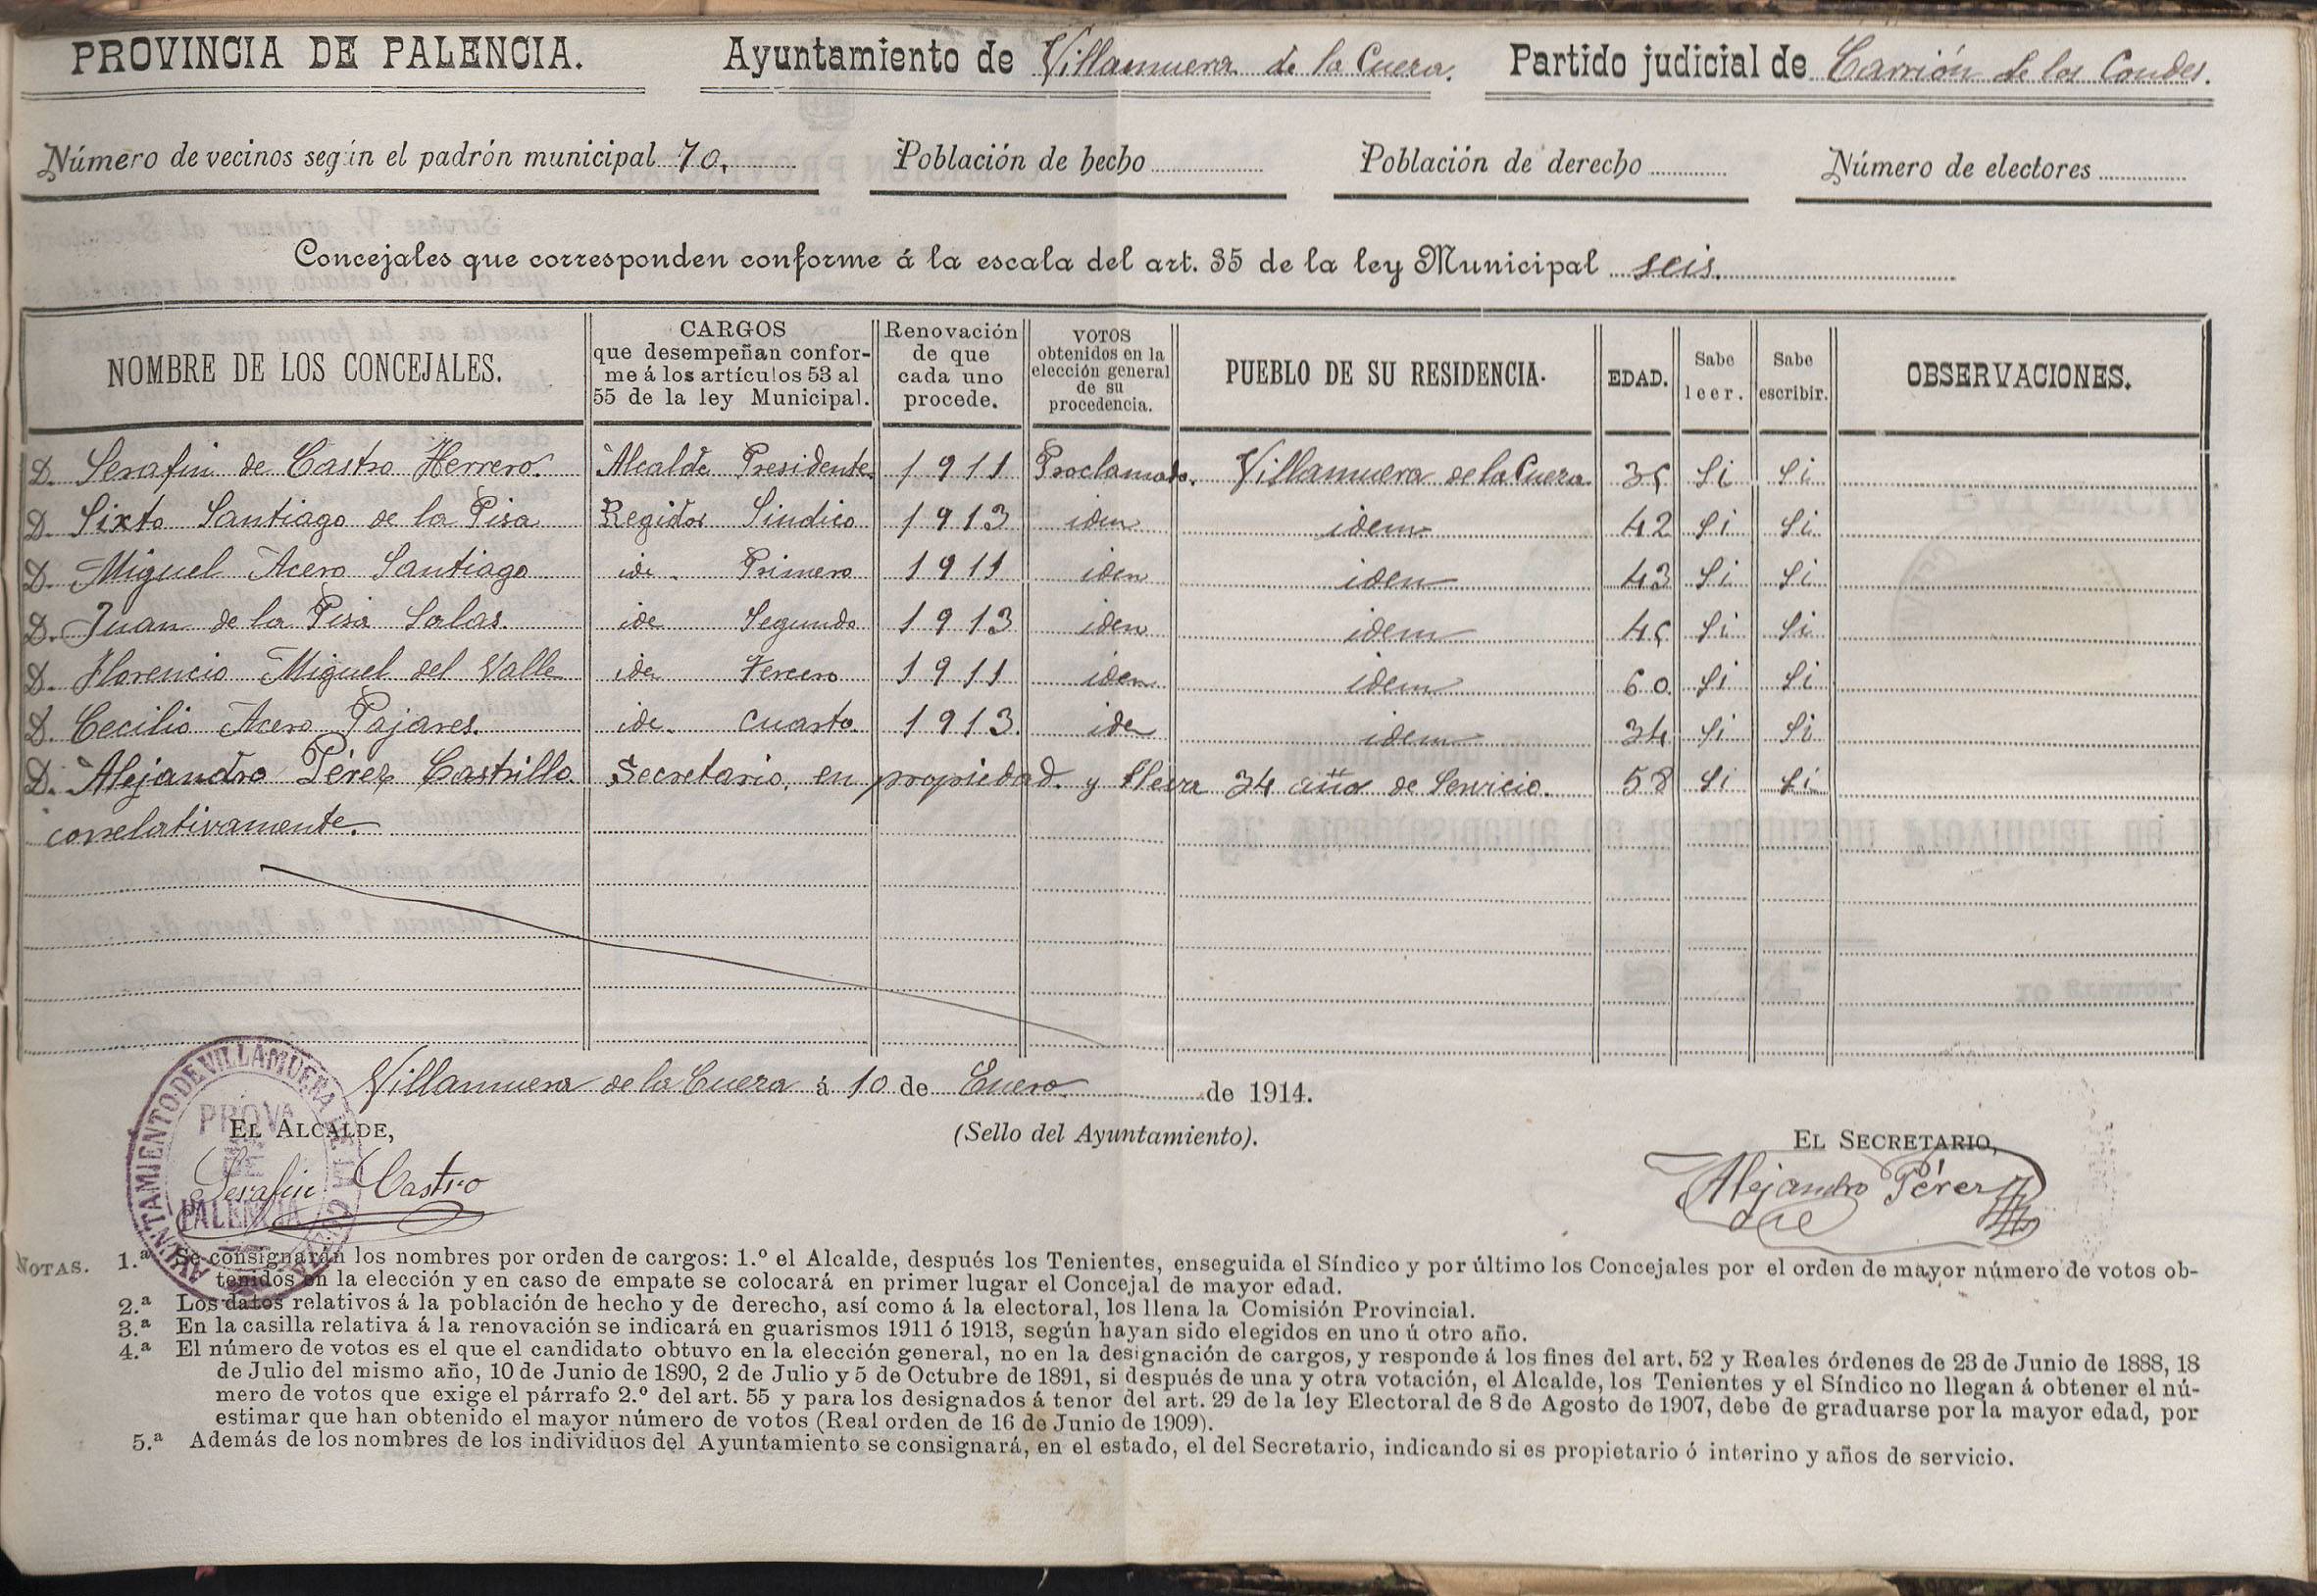 PROVINCIA DE PALENCIA. Ayuntamiento de Villamuera de la Cueza. Partido judicial de Carrión de los Condes.
Número de vecinos según el padrón municipal 70. Población de hecho Población de derecho Número de electores
Concejales que corresponden conforme á la escala del art. 35 de la ley Municipal seis.
NOMBRE DE LOS CONCEJALES. CARGOS que desempeñan conforme á los artículos 53 al 55 de la ley Municipal. Renovación de que cada uno procede. VOTOS obtenidos en la elección general de su procedencia. PUEBLO DE SU RESIDENCIA. EDAD. Sabe leer. Sabe escribir. OBSERVACIONES.
D. Serafin de Castro Herrero. Alcalde Presidente. 1911 Proclamado. Villamuera de la Cueza 35 Si Si
D. Sixto Santiago de la Pisa Regidor Sindico 1913 idem idem 42 Si Si
D. Miguel Acero Santiago ide. Primero 1911 idem idem 43 Si Si
D. Juan de la Pisa Salas. ide Segundo 1913 idem idem 45 Si Si
D. Florencio Miguel del Valle ide Tercero 1911 idem idem 60 Si Si
D. Cecilio Acero Pajares. ide. Cuarto. 1913. ide idem 34 Si Si
D. Alejandro Pérez Castrillo Secretario, en propiedad y lleva 34 años de Servicio. 58 Si Si
correlativamente.
Villamuera de la Cueza á 10 de Enero de 1914.
EL ALCALDE, (Sello del Ayuntamiento). EL SECRETARIO,
Serafin Castro Alejandro Pérez
AYUNTAMIENTO DE VILLAMUERA DE LA CUEZA
PROVA DE PALENCIA
NOTAS. 1.ª Se consignarán los nombres por orden de cargos: 1.º el Alcalde, después los Tenientes, enseguida el Síndico y por último los Concejales por el orden de mayor número de votos ob-
tenidos en la elección y en caso de empate se colocará en primer lugar el Concejal de mayor edad.
2.ª Los datos relativos á la población de hecho y de derecho, así como á la electoral, los llena la Comisión Provincial.
3.ª En la casilla relativa á la renovación se indicará en guarismos 1911 ó 1913, según hayan sido elegidos en uno ú otro año.
4.ª El número de votos es el que el candidato obtuvo en la elección general, no en la designación de cargos, y responde á los fines del art. 52 y Reales órdenes de 23 de Junio de 1888, 18
de Julio del mismo año, 10 de Junio de 1890, 2 de Julio y 5 de Octubre de 1891, si después de una y otra votación, el Alcalde, los Tenientes y el Síndico no llegan á obtener el nú-
mero de votos que exige el párrafo 2.º del art. 55 y para los designados á tenor del art. 29 de la ley Electoral de 8 de Agosto de 1907, debe de graduarse por la mayor edad, por
estimar que han obtenido el mayor número de votos (Real orden de 16 de Junio de 1909).
5.ª Además de los nombres de los individuos del Ayuntamiento se consignará, en el estado, el del Secretario, indicando si es propietario ó interino y años de servicio.